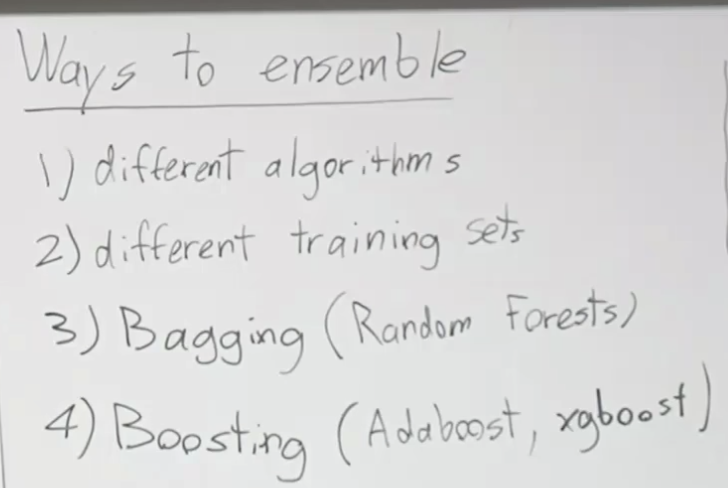 Ways to ensemble
1) different algorithms
2) different training sets
3) Bagging (Random Forests)
4) Boosting (Adaboost, xgboost)